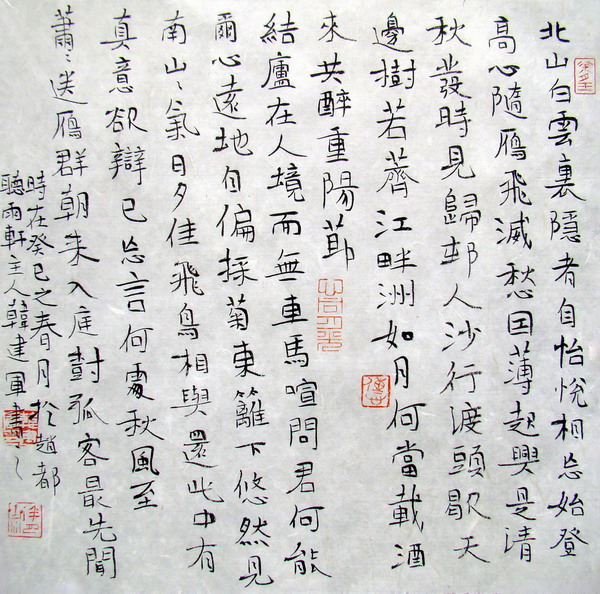 北山白雲裏隱者自怡悅相忘始登
高心隨鴈飛滅愁因薄起興是清
秋發時見歸邨人沙行渡頭歇天
邊樹若薺江畔洲如月何當載酒
來共醉重陽節
結廬在人境而無車馬喧問君何能
爾心遠地自偏採菊東籬下悠然見
南山〻氣日夕佳飛鳥相與還此中有
真意欲辯已忘言何處秋風至
蕭〻送鴈群朝來入庭樹孤客最先聞
時在癸巳之春月於趙都
聽雨軒主人韓建軍書之